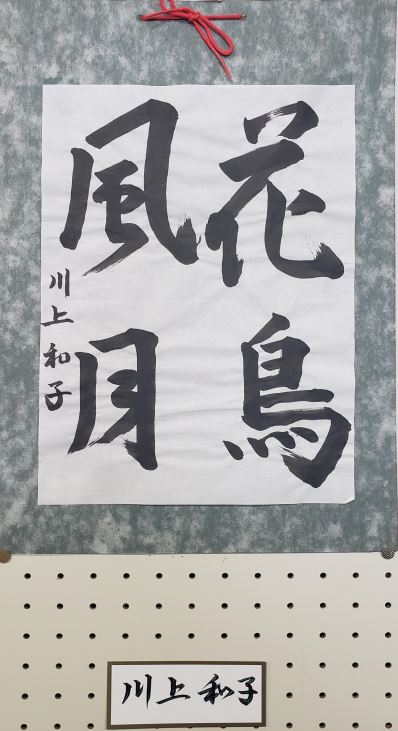 花鳥
風月
川上和子
川上和子